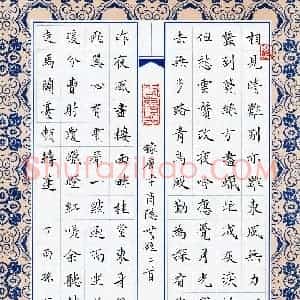 相見時難別亦難東風無力
蠶到死絲方盡蠟炬成灰淚
但愁雲鬢改夜吟應覺月光
去無多路青鳥殷勤為探看
錄李商隱無題二首
昨夜風畫樓西畔桂堂東身
飛翼心有靈犀一點通
暖分曹射覆蠟燈紅嗟余聽鼓
走馬蘭臺類轉蓬 丁酉孫